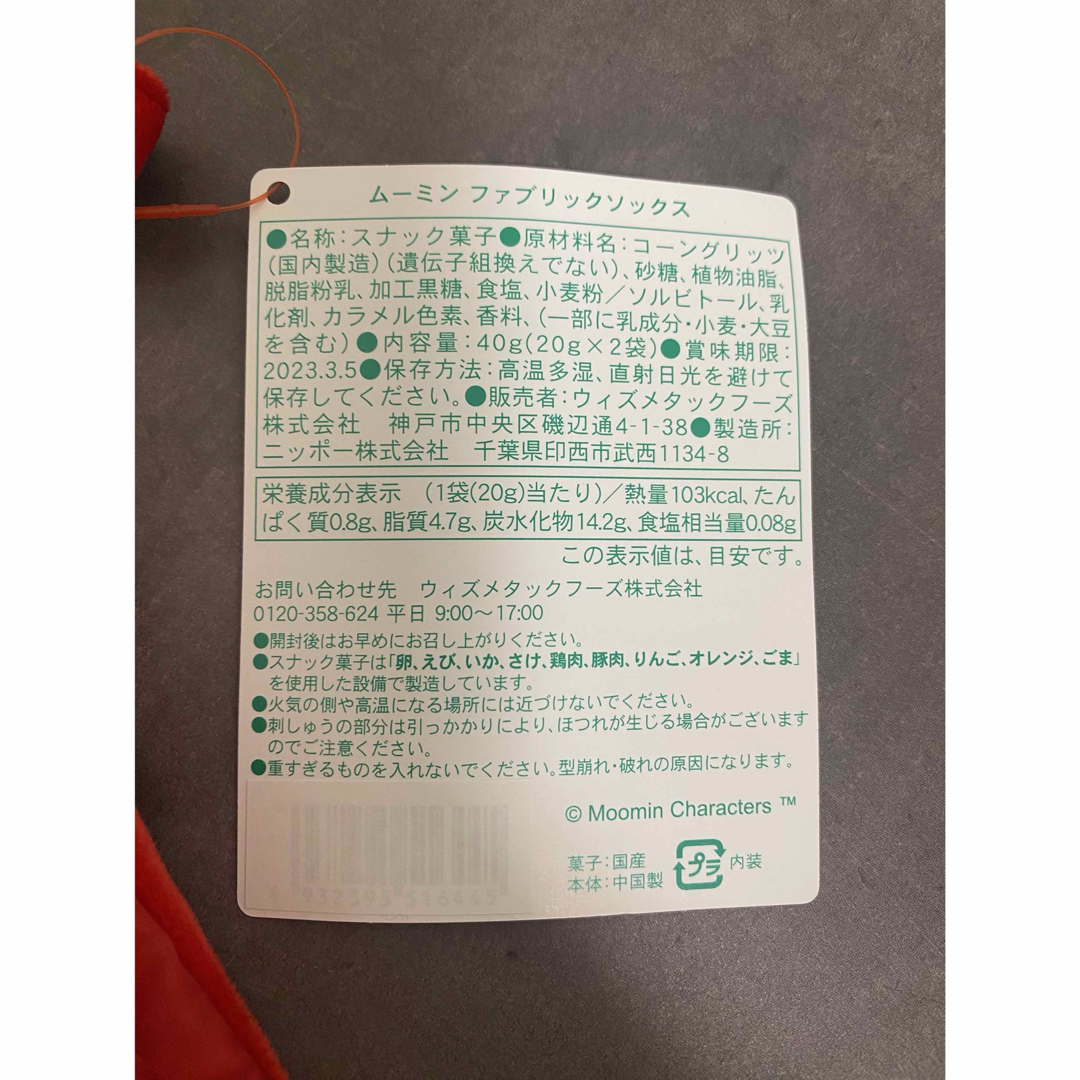 ムーミン ファブリックソックス
●名称:スナック菓子●原材料名:コーングリッツ
(国内製造)(遺伝子組換えでない)、砂糖、植物油脂、
脱脂粉乳、加工黒糖、食塩、小麦粉/ソルビトール、乳
化剤、カラメル色素、香料、(一部に乳成分・小麦・大豆
を含む)●内容量:40g(20g×2袋)●賞味期限:
2023.3.5●保存方法:高温多湿、直射日光を避けて
保存してください。●販売者:ウィズメタックフーズ
株式会社 神戸市中央区磯辺通4-1-38●製造所:
ニッポー株式会社 千葉県印西市武西1134-8
栄養成分表示 (1袋(20g)当たり)/熱量103kcal、たん
ぱく質0.8g、脂質4.7g、炭水化物14.2g、食塩相当量0.08g
この表示値は、目安です。
お問い合わせ先 ウィズメタックフーズ株式会社
0120-358-624 平日 9:00〜17:00
●開封後はお早めにお召し上がりください。
●スナック菓子は「卵、えび、いか、さけ、鶏肉、豚肉、りんご、オレンジ、ごま」
を使用した設備で製造しています。
●火気の側や高温になる場所には近づけないでください。
●刺しゅうの部分は引っかかりにより、ほつれが生じる場合がございます
のでご注意ください。
●重すぎるものを入れないでください。型崩れ・破れの原因になります。
© Moomin Characters ™
菓子:国産
本体:中国製
プラ 内装